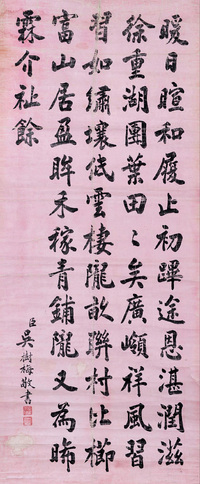 暖日暄和履止初蹕途恩湛潤滋
徐重湖團葉田〻矣廣頔祥風習
習如繡壤低雲棲隴畝聯村比櫛
富山居盈眸禾稼青鋪隴又為晞
霖介祉餘
臣吳樹梅敬書